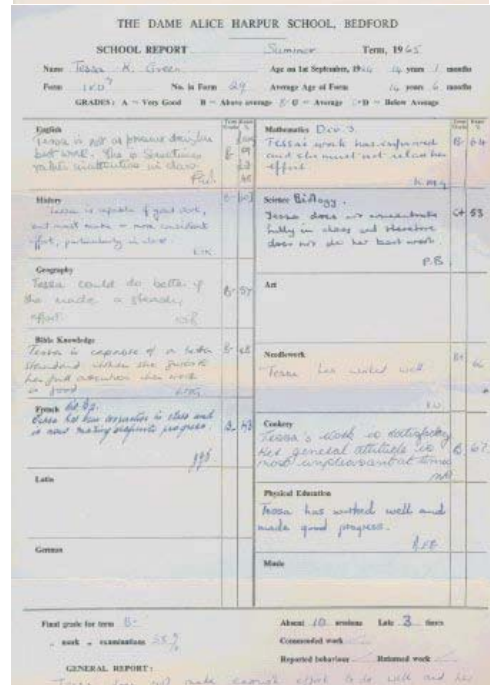 THE DAME ALICE HARPUR SCHOOL, BEDFORD
SCHOOL REPORT Summer Term, 1965
Name Tessa K. Green Age on 1st September, 1964 14 years 1 months
Form No. in Form 29 Average Age of Form 14 years 6 months
GRADES: A = Very Good B = Above average C = Average D = Below Average
English
Tessa is not at present doing her
best work. She is sometimes
rather inattentive in class.
History
Tessa is capable of good work,
but must make a more consistent
effort, particularly in class.
Geography
Tessa could do better if
she made a steady
effort. B- 57
Bible Knowledge
Tessa is capable of a
standard. When she
her full attention her work
is good
French
Tessa has been in class and
is now making definite progress. B- 43
Latin
German
Mathematics Div. 3
Tessa's work has improved
and she must not relax her
effort. B- 64
Science Biology.
Tessa does not concentrate
fully in class and therefore
does not do her best work. C+ 53
P.B.
Art
Needlework
Tessa has worked well
Cookery
Tessa's work is satisfactory
Her general attitude is
most unpleasant at times B 67
Physical Education
Tessa has worked well and
made good progress.
Music
Final grade for term B-
" mark " examinations 55%
Absent 10 sessions Late 3 times
Commended work
Reported behaviour Returned work
GENERAL REPORT:
Tessa does not make enough effort to do well and her